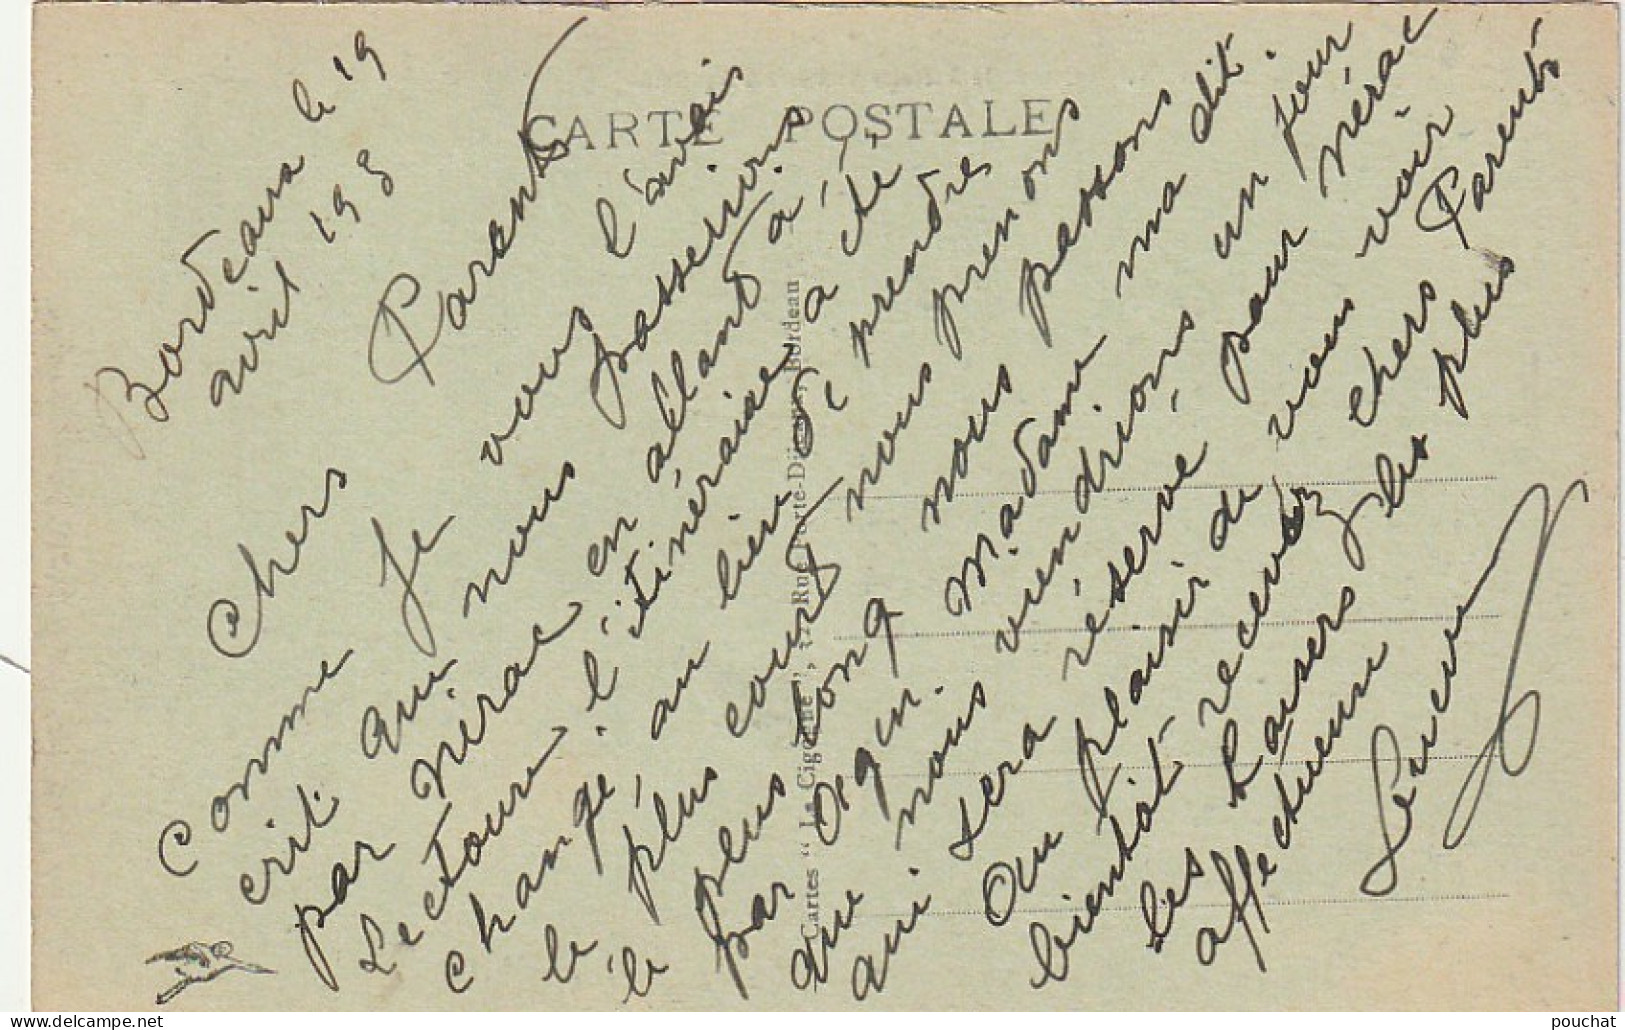 CARTE POSTALE
Bordeaux le 19
avril 193
Chers Parents
Comme je vous l'avais
crit qui nous passerions
par Nérac en allant à
Lectoure. l'itinéraire a été
changé, au lieu de prendre
le plus court nous prenons
le plus long nous passons
par Agen. Madame ma dit.
que nous viendrions un jour
qui sera réservé, pour Nérac
Au plaisir de vous voir
bientôt recevez chers Parents
les baisers les plus
affectueux
Cartes " La Cigogne ", Rue Porte-Dijeaux, Bordeau
pouchat